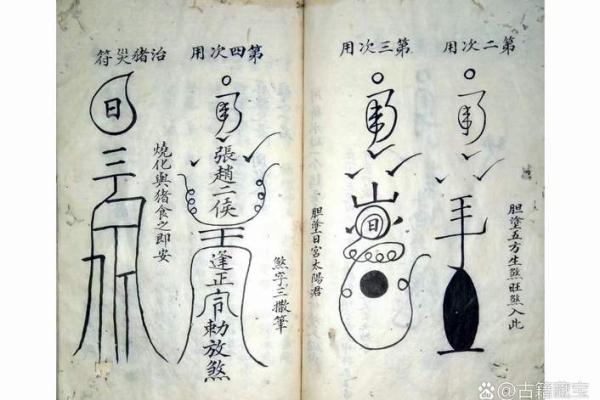 第二次用
胆塗五方生煞旺煞入此
第三次用
胆塗日宮太陽君
第四次用
張趙二侯
蓬正言勅放煞
煞字三撒筆
治豬災符
燒化與豬食之即安
@古籍藏宝